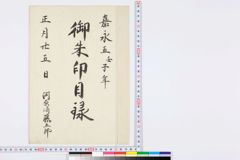 嘉永五壬子年
御朱印目録
正月廿五日